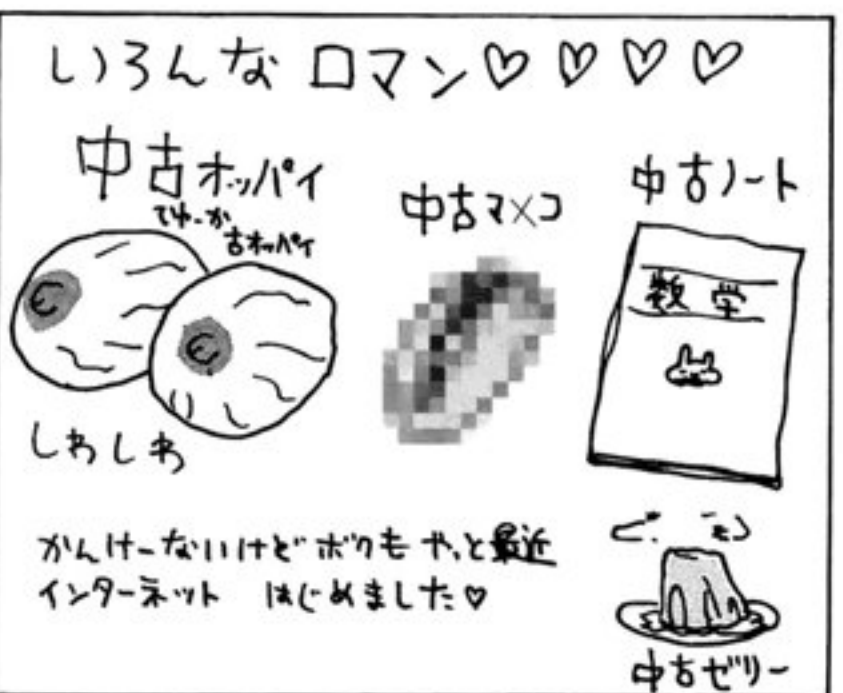 いろんな ロマン♡♡♡♡
中古オッパイ
てゆーか
古オッパイ
しわしわ
中古マ×コ
中古ノート
数学
かんけーないけど ボクも やっと最近
インターネット はじめました♡
中古ゼリー